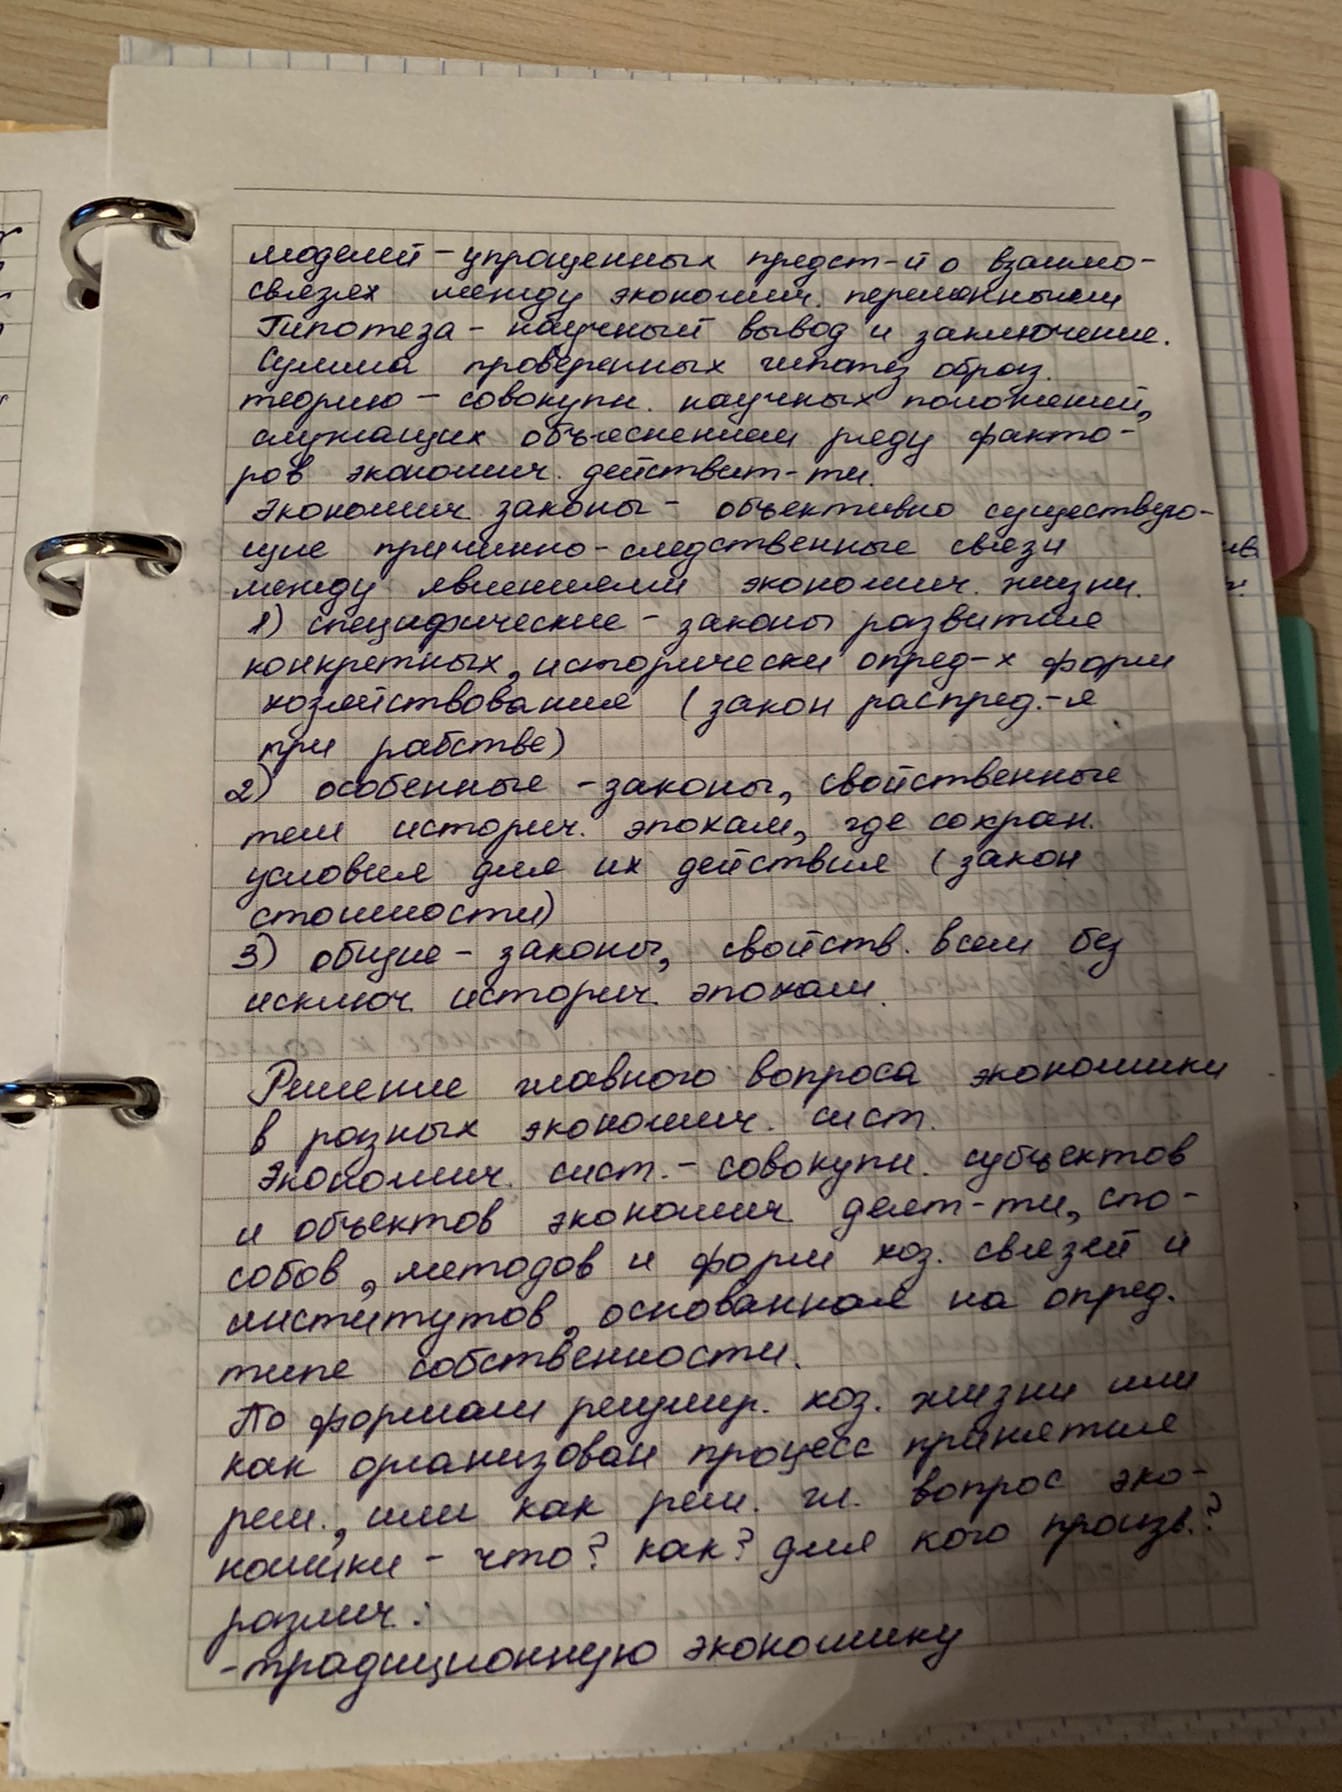 моделей – упрощенных предст-й о взаимо-
связях между экономич. переменными
Гипотеза – научный вывод и заключение.
Сумма проверенных гипотез образ.
теорию – совокупн. научных положений,
служащих объяснением ряду факто-
ров экономич. действит-ти.
Экономич. законы – объективно существую-
щие причинно-следственные связи
между явлениями экономич. жизни.
1) специфические – законы развития
конкретных, исторически опред-х форм
хозяйствования (закон распред.-я
при рабстве)
2) особенные – законы, свойственные
тем историч. эпохам, где сохран.
условия для их действия (закон
стоимости)
3) общие – законы, свойств. всем без
исключ. историч. эпохам.
Решение главного вопроса экономики
в разных экономич. сист.
Экономич. сист. – совокупн. субъектов
и объектов экономич. деят-ти, спо-
собов, методов и форм хоз. связей и
институтов, основанная на опред.
типе собственности.
По формам регулир. хоз. жизни или
как организован процесс принятия
реш., или как реш. гл. вопрос эко-
номики – что? как? для кого произв.?
различ.:
-традиционную экономику